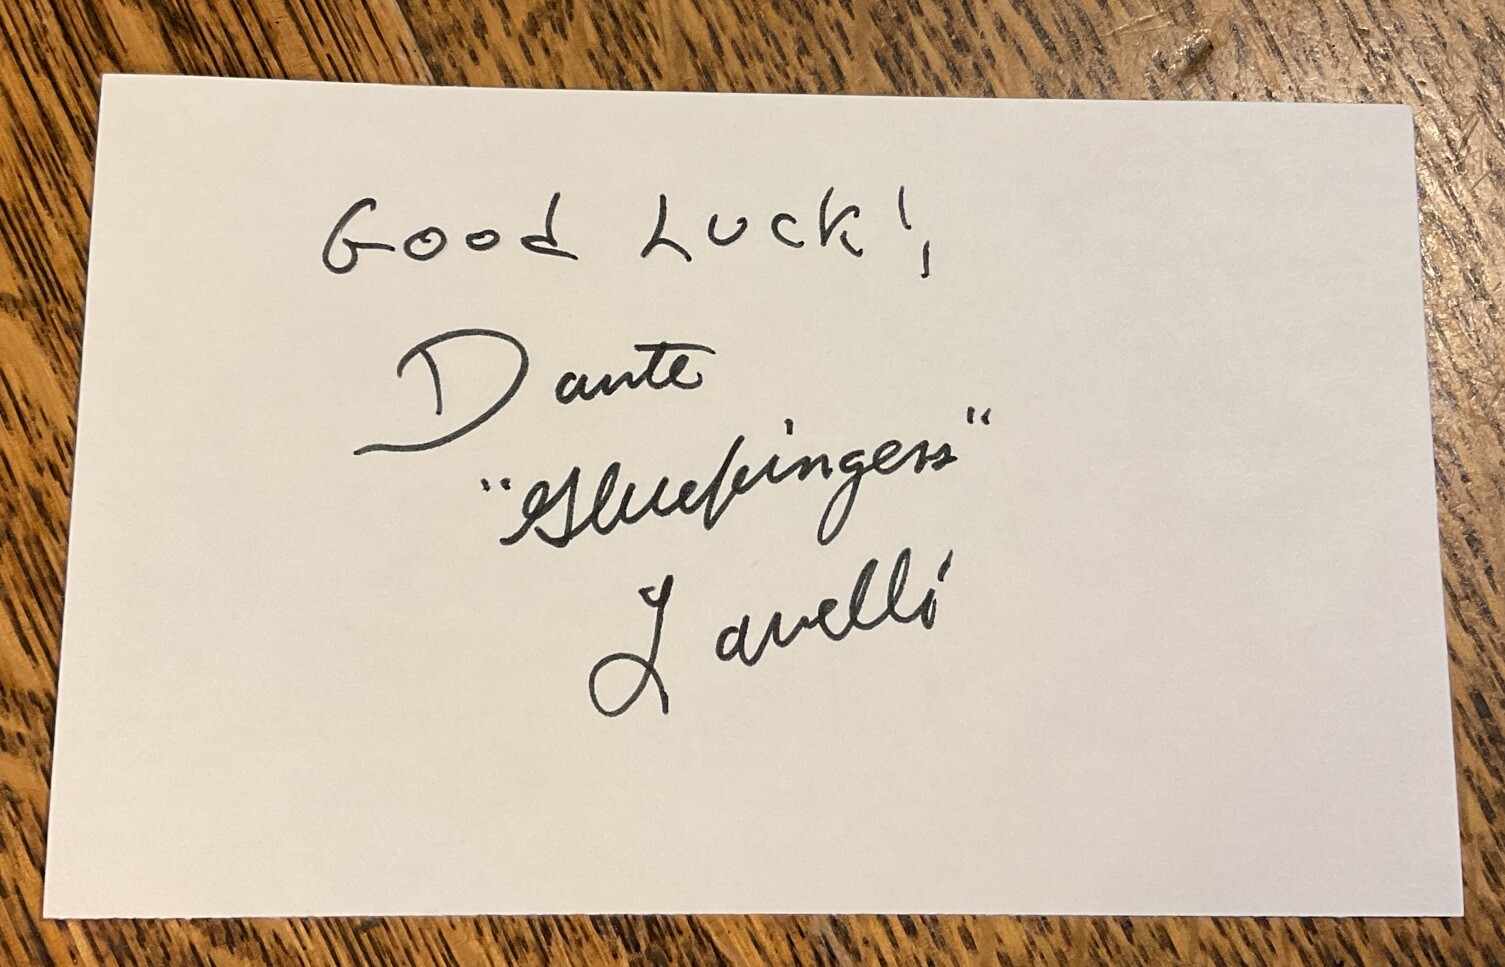 Good Luck!,
Dante
"Gluefingers"
Lavelli